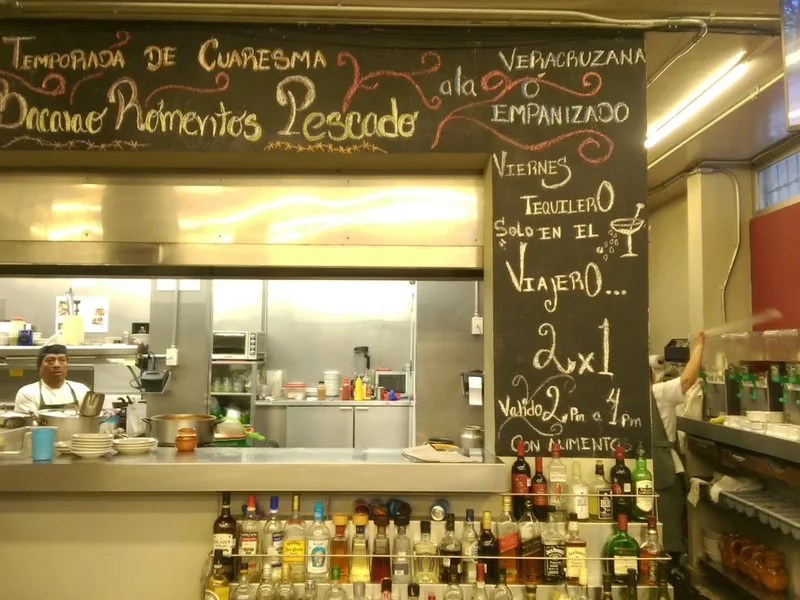 TEMPORADA DE CUARESMA
Bacalao Romeritos Pescado
a la
VERACRUZANA
Ó
EMPANIZADO
VIERNES
TEQUILERO
SOLO EN EL
VIAJERO...
2x1
Valido 2 Pm a 4 Pm
CON ALIMENTOS